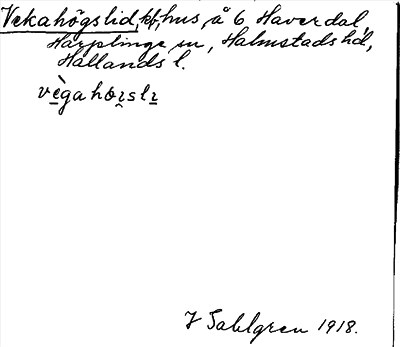 Vekahögslid, kf, hus, å 6 Haverdal,
Harplinge sn, Halmstads hd,
Hallands l.
vègahөɪslɪ
J Sahlgren 1918.